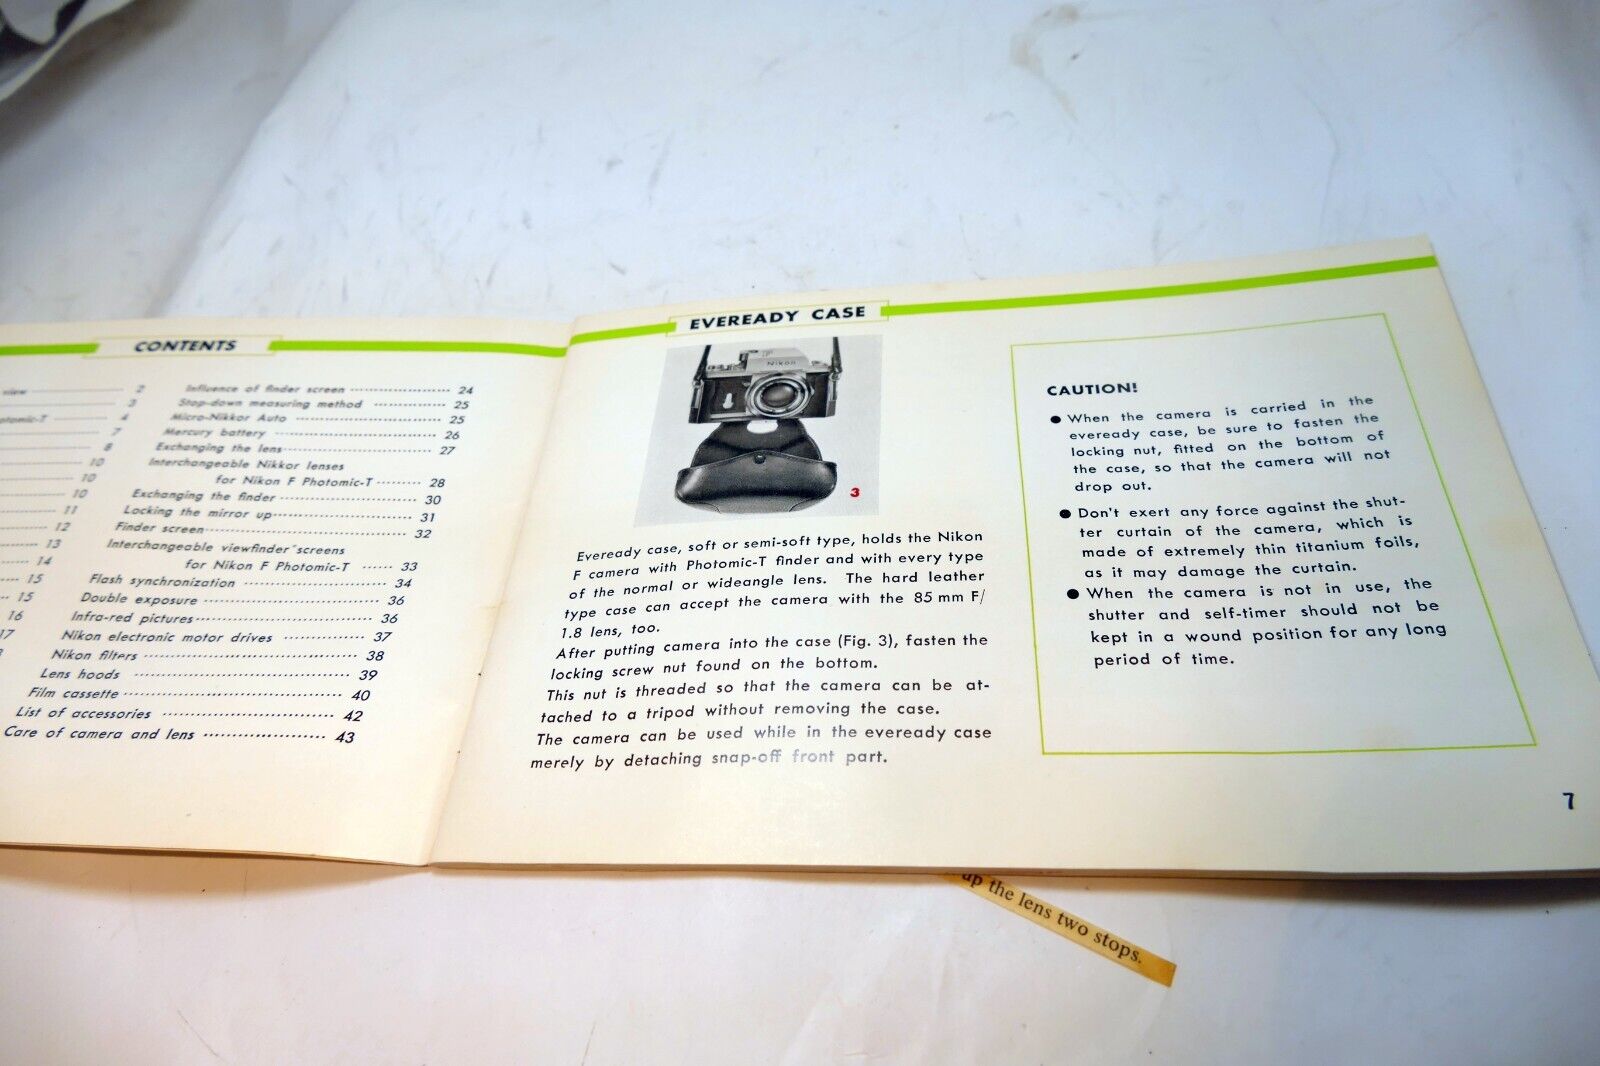 CONTENTS
view 2
3
otomic-T 4
7
8
10
10
10
11
12
13
14
15
15
16
17
Influence of finder screen 24
Stop-down measuring method 25
Micro-Nikkor Auto 25
Mercury battery 26
Exchanging the lens 27
Interchangeable Nikkor lenses
for Nikon F Photomic-T 28
Exchanging the finder 30
Locking the mirror up 31
Finder screen 32
Interchangeable viewfinder screens
for Nikon F Photomic-T 33
Flash synchronization 34
Double exposure 36
Infra-red pictures 36
Nikon electronic motor drives 37
Nikon filters 38
Lens hoods 39
Film cassette 40
List of accessories 42
Care of camera and lens 43
EVEREADY CASE
F
Nikon
3
Eveready case, soft or semi-soft type, holds the Nikon
F camera with Photomic-T finder and with every type
of the normal or wideangle lens. The hard leather
type case can accept the camera with the 85 mm F/
1.8 lens, too.
After putting camera into the case (Fig. 3), fasten the
locking screw nut found on the bottom.
This nut is threaded so that the camera can be at-
tached to a tripod without removing the case.
The camera can be used while in the eveready case
merely by detaching snap-off front part.
CAUTION!
● When the camera is carried in the
eveready case, be sure to fasten the
locking nut, fitted on the bottom of
the case, so that the camera will not
drop out.
● Don't exert any force against the shut-
ter curtain of the camera, which is
made of extremely thin titanium foils,
as it may damage the curtain.
● When the camera is not in use, the
shutter and self-timer should not be
kept in a wound position for any long
period of time.
7
up the lens two stops.